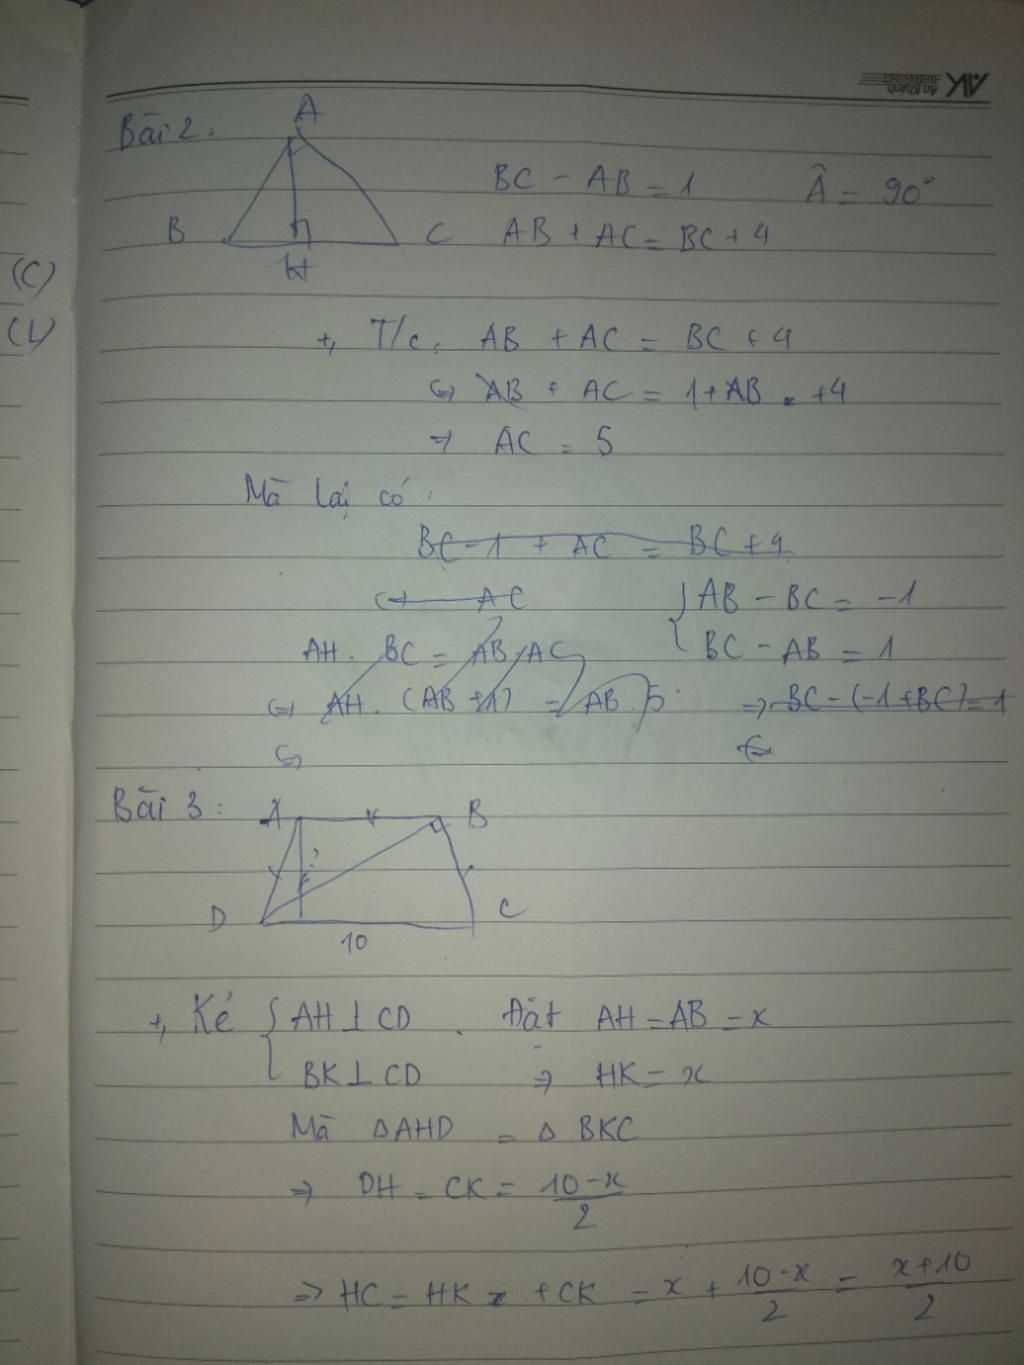 Bài 2:
A
BC - AB = 1 Â = 90°
B H C AB + AC = BC + 4
+, T/c: AB + AC = BC + 4
⇔ AB + AC = 1 + AB + 4
⇒ AC = 5
Mà lại có:
BC - 1 + AC = BC + 4
⇔ AC { AB - BC = -1
AH. BC = AB. AC BC - AB = 1
⇔ AH. (AB + 1) = AB. 5 ⇒ BC - (-1 + BC) = 1
⇔
Bài 3: A B
?
D C
10
+, Kẻ { AH ⊥ CD . Đặt AH = AB = x
BK ⊥ CD ⇒ HK = x
Mà ΔAHD = ΔBKC
⇒ DH = CK = (10 - x)/2
⇒ HC = HK + CK = x + (10 - x)/2 = (x + 10)/2
(C)
(L)